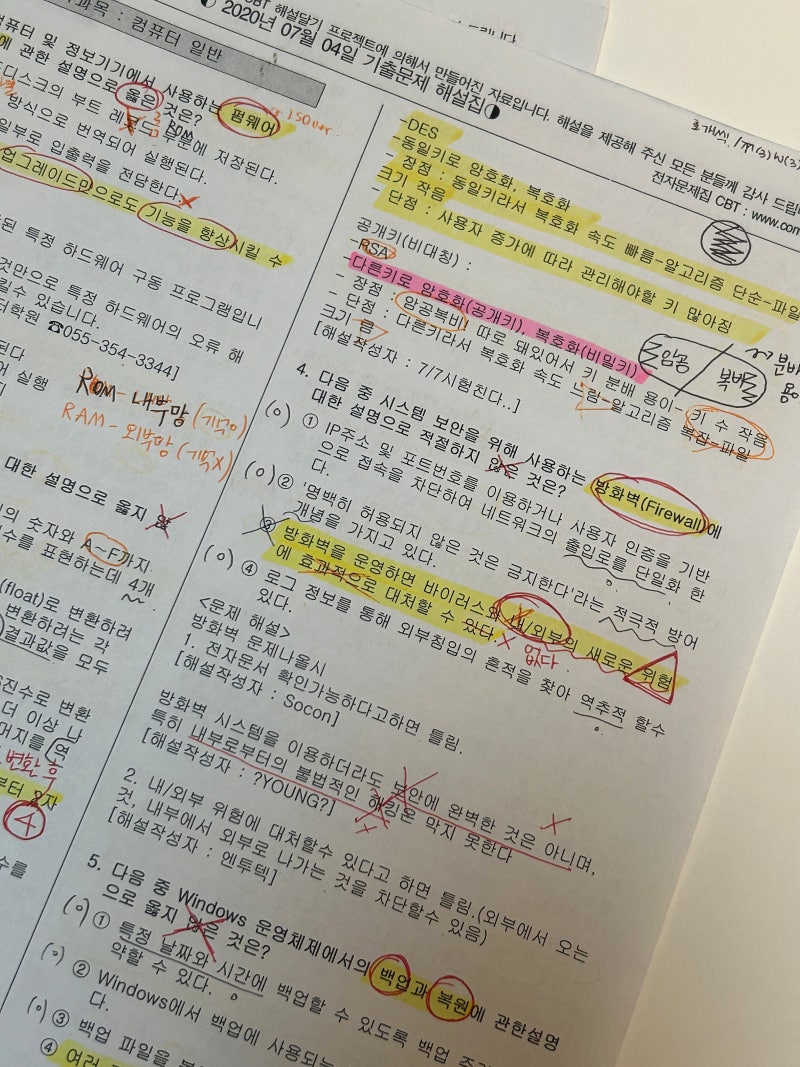 CBT 해설달기 프로젝트에 의해서 만들어진 자료입니다. 해설을 제공해 주신 모든 분들께 감사 드립니
◐ 2020년 07월 04일 기출문제 해설집◑
전자문제집 CBT : www.com
과목 : 컴퓨터 일반
컴퓨터 및 정보기기에서 사용하는 펌웨어
에 관한 설명으로 옳은 것은?
디스크의 부트 레코드 부분에 저장된다.
ROM
방식으로 번역되어 실행된다.
일부로 입출력을 전담한다.
업그레이드만으로도 기능을 향상시킬 수
특정 하드웨어 구동 프로그램입니
것만으로 특정 하드웨어의 오류 해
킬수 있습니다.
터학원 ☎055-354-3344]
실행
ROM - 내부망 (기억o)
RAM - 외부망 (기억x)
대한 설명으로 옳지 않
의 숫자와 A~F까지
수를 표현하는데 4개
(float)로 변환하려
변환하려는 각
결과값을 모두
진수로 변환
더 이상 나
머지를 역
변환 후
부터 2자
4
수를
-DES
- 동일키로 암호화, 복호화
- 장점 : 동일키라서 복호화 속도 빠름-알고리즘 단순-파일
크기 작음
- 단점 : 사용자 증가에 따라 관리해야할 키 많아짐
공개키(비대칭) :
-RSA
-다른키로 암호화(공개키), 복호화(비밀키)
- 장점 : 암공복비 따로 돼있어서 키 분배 용이- 키 수 작음
- 단점 : 다른키라서 복호화 속도 느림-알고리즘 복잡-파일
크기 큼
[해설작성자 : 7/7시험친다..]
암공 복비
분배
용
4. 다음 중 시스템 보안을 위해 사용하는 방화벽(Firewall)에
대한 설명으로 적절하지 않은 것은?
(o) ① IP주소 및 포트번호를 이용하거나 사용자 인증을 기반
으로 접속을 차단하여 네트워크의 출입로를 단일화 한
다.
(o) ② '명백히 허용되지 않은 것은 금지한다'라는 적극적 방어
개념을 가지고 있다.
③ 방화벽을 운영하면 바이러스와 내/외부의 새로운 위험
에 효과적으로 대처할 수 있다.
없다
(o) ④ 로그 정보를 통해 외부침입의 흔적을 찾아 역추적 할수
있다.
<문제 해설>
방화벽 문제나올시
1. 전자문서 확인가능하다고하면 틀림.
[해설작성자 : Socon]
방화벽 시스템을 이용하더라도 보안에 완벽한 것은 아니며,
특히 내부로부터의 불법적인 해킹은 막지 못한다
[해설작성자 : ?YOUNG?]
2. 내/외부 위험에 대처할수 있다고 하면 틀림.(외부에서 오는
것, 내부에서 외부로 나가는 것을 차단할수 있음)
[해설작성자 : 엔투텍]
5. 다음 중 Windows 운영체제에서의 백업과 복원에 관한설명
으로 옳지 않은 것은?
(o) ① 특정 날짜와 시간에 백업할 수 있도록 백업
약할 수 있다.
(o) ② Windows에서 백업에 사용되는
다.
(o) ③ 백업 파일을
④ 여러